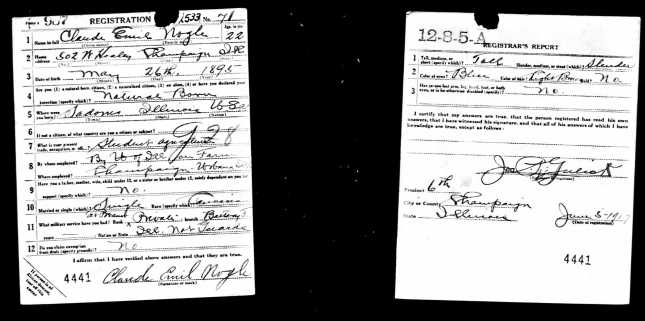 Form 1 507 REGISTRATION 1533 No. 71
1 Name in full Claude Emil Nogle Age, in yrs. 22
2 Home address 502 W Healey Champaign Ill
3 Date of birth May 26th 1895
4 Are you (1) a natural born citizen, (2) a naturalized citizen, (3) an alien, (4) or have you declared your intention (specify which)? Natural Born
5 Where were you born? Sadorus Illinois USa
6 If not a citizen, of what country are you a citizen or subject?
7 What is your present trade, occupation, or office? Student
8 By whom employed? By U of Ill on Farm
Where employed? Champaign Urbana
9 Have you a father, mother, wife, child under 12, or a sister or brother under 12, solely dependent on you for support (specify which)? No.
10 Married or single (which)? Single Race (specify which)? Caucasian
11 What military service have you had? Rank Private branch Battery
years Nation or State Ill. Nat Guards
12 Do you claim exemption from draft (specify grounds)? No
I affirm that I have verified above answers and that they are true.
4441 Claude Emil Nogle
(Signature or mark)
12-8-5-A
REGISTRAR'S REPORT
1 Tall, medium, or short (specify which)? Tall Slender, medium, or stout (which)? Slender
2 Color of eyes? Blue Color of hair? Light Brown Bald? No
3 Has person lost arm, leg, hand, foot, or both eyes, or is he otherwise disabled (specify)? No.
I certify that my answers are true, that the person registered has read his own answers, that I have witnessed his signature, and that all of his answers of which I have knowledge are true, except as follows:
Precinct 6th
City or County Champaign
State Illinois June 5-1917
(Date of registration)
4441